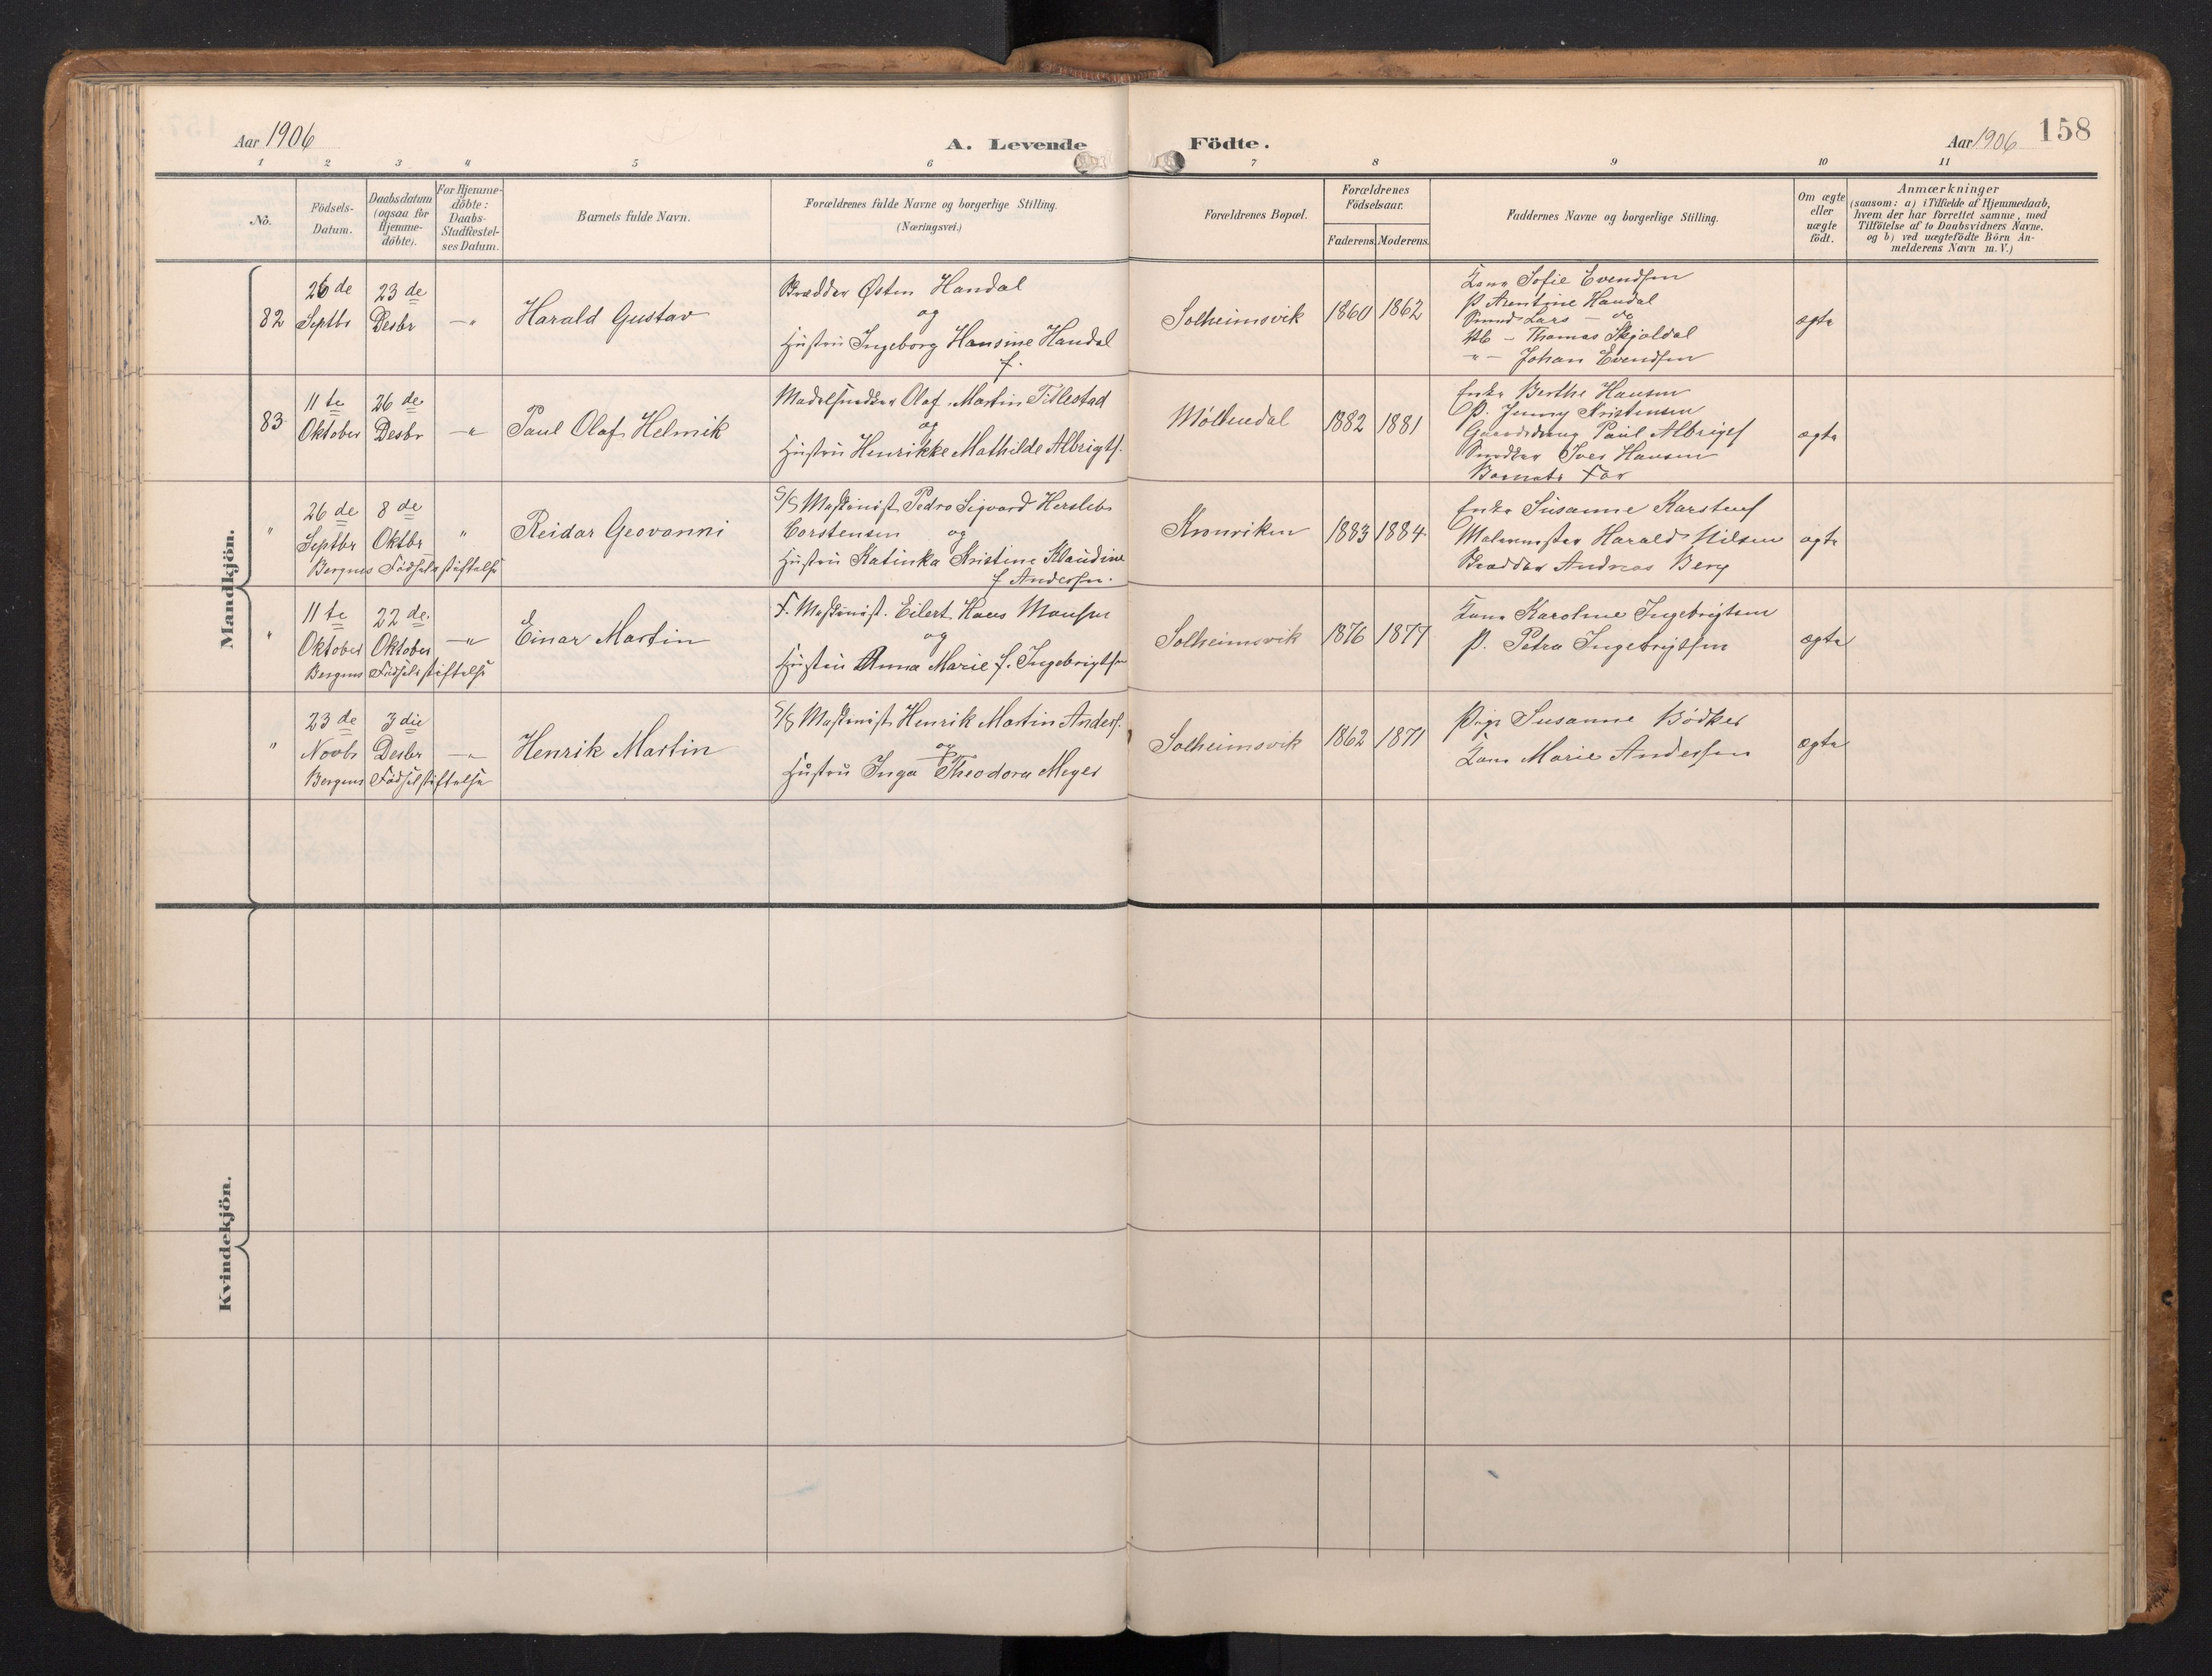 Aar 1906
A. Levende Födte.
Aar 1906 158
1 2 3 4 5 6 7 8 9 10 11
No.
Födsels-Datum.
Daabsdatum (ogsaa for Hjemme-döbte).
For Hjemme-döbte: Daabs-Stadfæstel-ses Datum.
Barnets fulde Navn.
Forældrenes fulde Navne og borgerlige Stilling.
(Næringsvei.)
Forældrenes Bopæl.
Forældrenes Födselsaar.
Faderens. Moderens.
Faddernes Navne og borgerlige Stilling.
Om ægte eller uægte födt.
Anmærkninger
(saasom: a) i Tilfælde af Hjemmedaab,
hvem der har forrettet samme, med
Tilföielse af to Daabsvidners Navne.
og b) ved uægtefödte Börn An-
melderens Navn m. V.)
Mandkjön.
82
26 de Septbr
23 de Desbr
— "
Harald Gustav
Østen Handal
og
Hustru Ingeborg Hansine Handal
f.
Solheimsvik
1860 1862
Kone Sofie Evendsen
P. Arentine Handal
Lars —
— Thomas Skjoldal
" — Johan Evendsen
ægte
83
11 te Oktober
26 de Desbr
— "
Paul Olaf Helmik
Olaf Martin Titlestad
og
Hustru Henrikke Mathilde Albrigts.
Møllendal
1882 1881
Enke Berthe Hansen
P. Jenny Kristensen
Paul Albrigts
Iver Hansen
Barnets Far
ægte
"
26 de Septbr
8 de Oktbr
"
Bergens Fødselsstiftelse
Reidar Geovanni
S/S Maskinist Pedro Sigvard Hersleb
Corstensen og
Hustru Katinka Kristine Klaudine
f. Andersen.
Kronviken
1883 1884
Enke Susanne Karstens
Malermester Harald Nilsen
Andreas Berg
ægte
"
11 te Oktober
22 de Oktober
— "
Bergens Fødselsstiftelse
Einar Martin
F. Maskinist. Eilert Hans Monsen
og
Hustru Anna Marie f. Ingebrigtsen
Solheimsvik
1876 1877
Kone Karoline Ingebrigtsen
P. Petra Ingebrigtsen
ægte
"
23 de Novbr
3 die Desbr
— "
Bergens Fødselsstiftelse
Henrik Martin
S/S Maskinist Henrik Martin Anders.
og
Hustru Inga Theodora Meyer
Solheimsvik
1862 1871
Pige Susanne Bödker
Kone Marie Andersen
ægte
Kvindekjön.